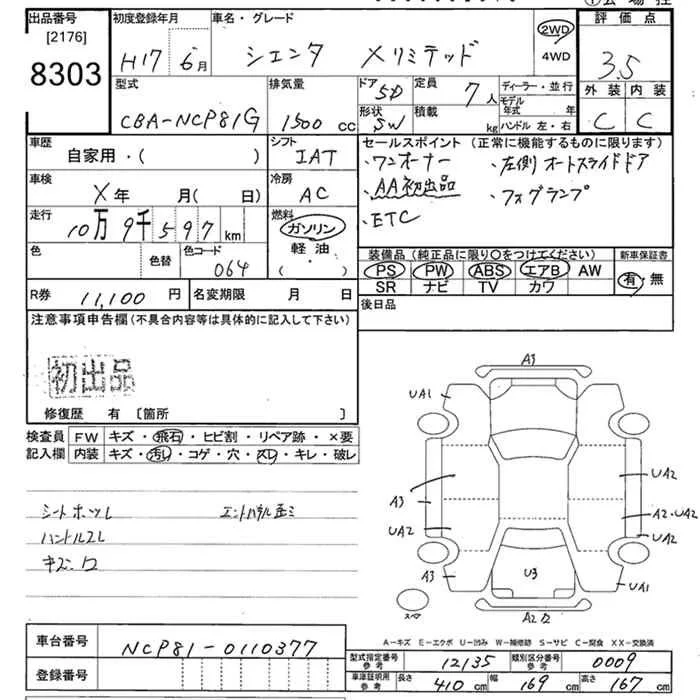 出品番号
[2176]
8303
初度登録年月
H17 6月
車名・グレード
シエンタ Xリミテッド
2WD
4WD
評価点
3.5
外装 内装
C C
型式
CBA-NCP81G
排気量
1500 cc
ドア
5D
形状
SW
定員
7人
積載
kg
ディーラー・並行
モデル年式 年
ハンドル 左・右
車歴
自家用・( )
シフト
IAT
車検
X年 月(日)
冷房
AC
走行
10万9千597km
燃料
ガソリン
軽油
・( )
色
色替
色コード
064
R券 11,100円
名変期限 月 日
セールスポイント (正常に機能するものに限ります)
・ワンオーナー ・左側オートスライドドア
・AA初出品 ・フォグランプ
・ETC
装備品 (純正品に限り〇をつけてください)
新車保証書
PS PW ABS エアB AW
有・無
SR ナビ TV カワ
後日品
注意事項申告欄 (不具合内容等は具体的に記入して下さい)
初出品
修復歴 有 [箇所 ]
検査員 FW キズ・飛石・ヒビ割・リペア跡・×要
記入欄 内装 キズ・汚レ・コゲ・穴・スレ・キレ・破レ
ハンドルスレ
A3
UA1
UA2
A3
A2・UA2
UA2
UA2
A3
U3
UA1
A2
A-キズ E-エクボ U-凹み W-補修跡 S-サビ C-腐食 XX-交換済
車台番号 NCP81-0110377
登録番号
型式指定番号 参考 12135
類別区分番号 参考 0009
車庫証明用 参考
長さ 410cm 幅 169cm 高さ 167cm